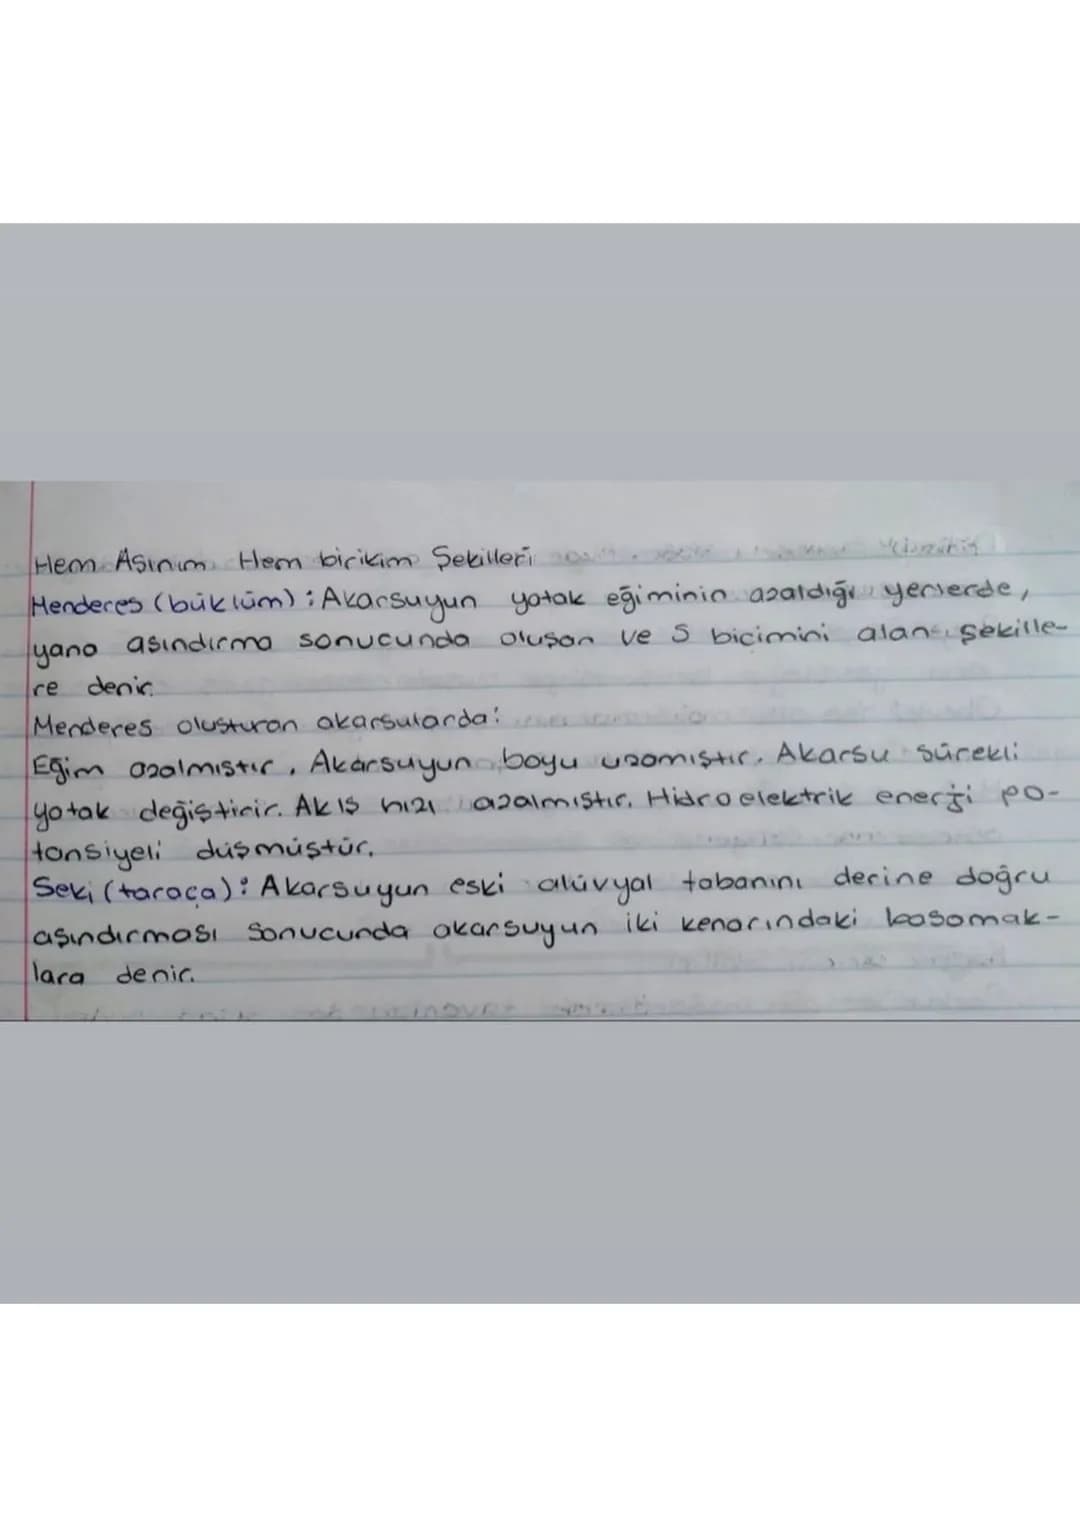 Hem Aşınım Hem birikim Şekilleri
Menderes (büklüm): Akarsuyun yatak eğiminin azaldığı yerlerde,
yana aşındırma sonucunda oluşan ve S biçimini alan şekille-
re denir.
Menderes oluşturan akarsularda:
Eğim azalmıştır. Akarsuyun boyu uzamıştır. Akarsu sürekli
yatak değiştirir. Akış hızı azalmıştır. Hidroelektrik enerji po-
tansiyeli düşmüştür.
Seki (taraça): Akarsuyun eski alüvyal tabanını derine doğru
aşındırması sonucunda akarsuyun iki kenarındaki basamak-
lara denir.